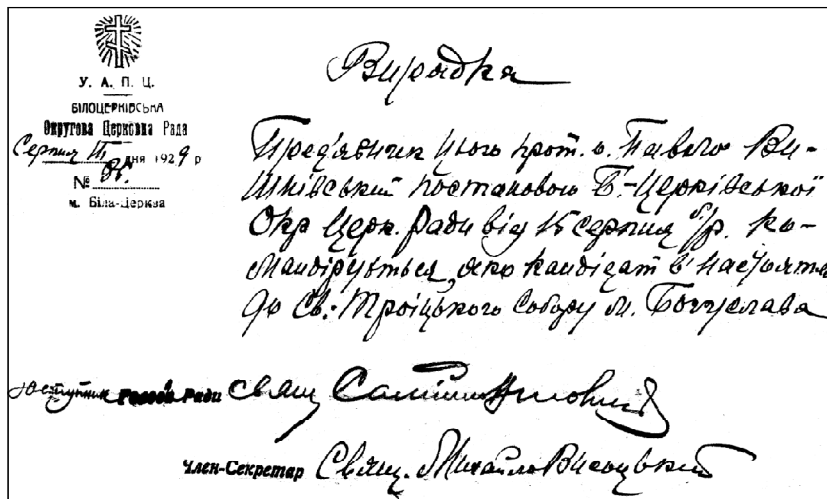 У. А. П. Ц.
БІЛОЦЕРКІВСЬКА
Округова Церковна Рада
Серпня дня 1929 р
№ 85.
м. Біла-Церква
Виридка
Пред'явник цього прот. о. Павло Ви-
шнівський постановою Б.-Церківської
Окр Церк. Ради від 15 серпня б/р. ко-
мандірується, яко кандідат в настоятелі
до Св.-Троїцького Собору м. Богуслава
Заступник Голови Ради Свящ
Член-Секретар Свящ. Михайло Висоцький